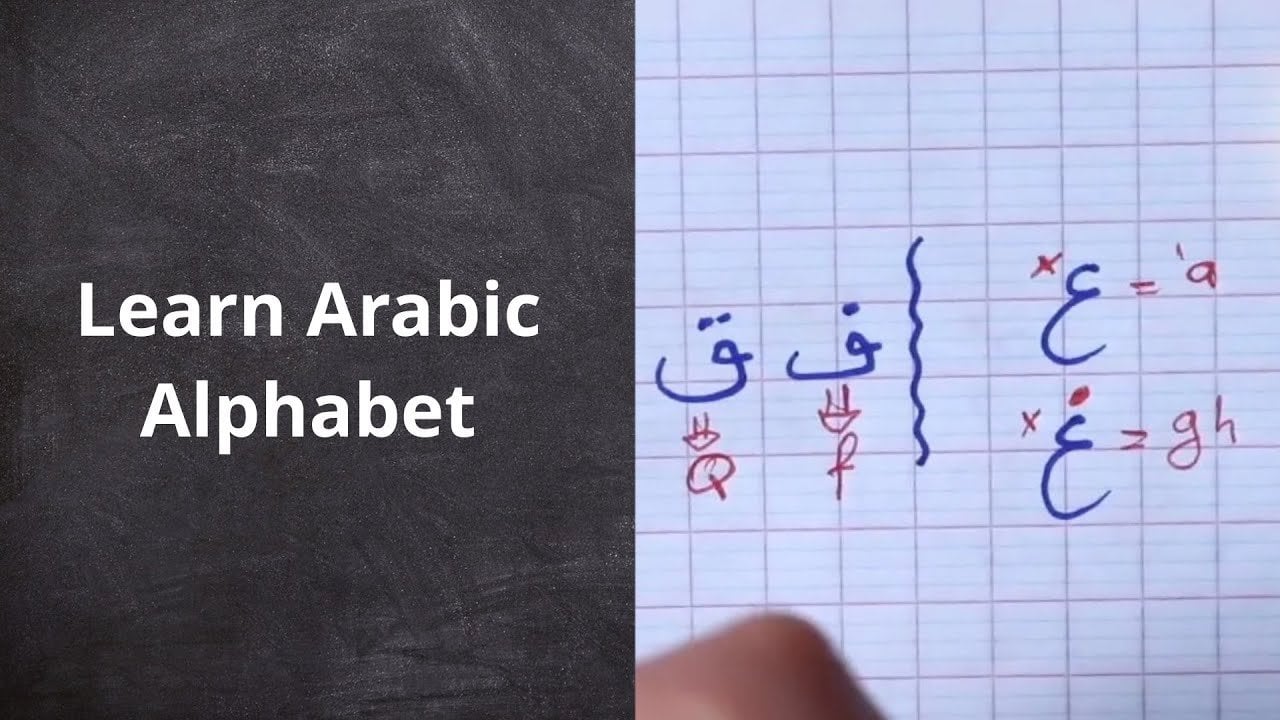 Learn Arabic
Alphabet
× ع = 'a
× غ = gh
ف ق
f Q